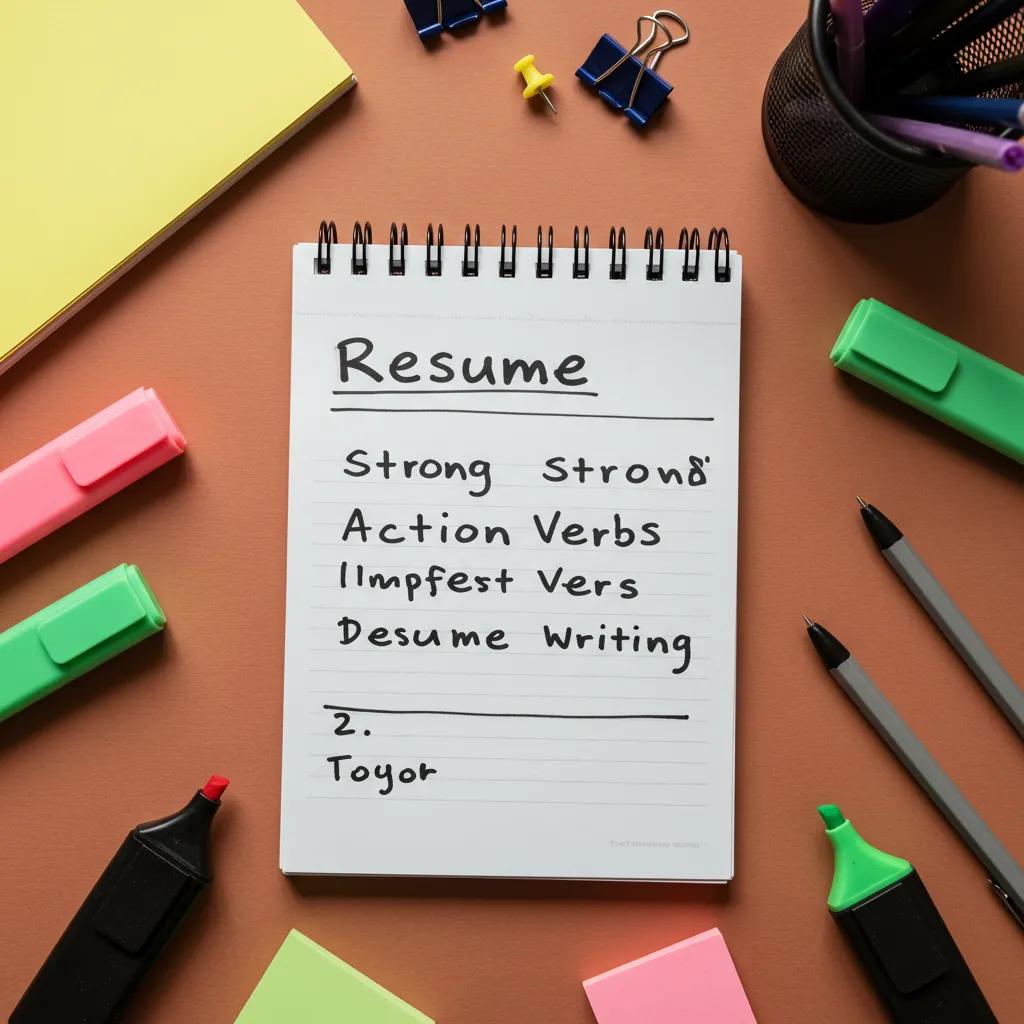 Resume
Strong Stron
Action Verbs
Impfest Vers
Desume Writing
2.
Toyor